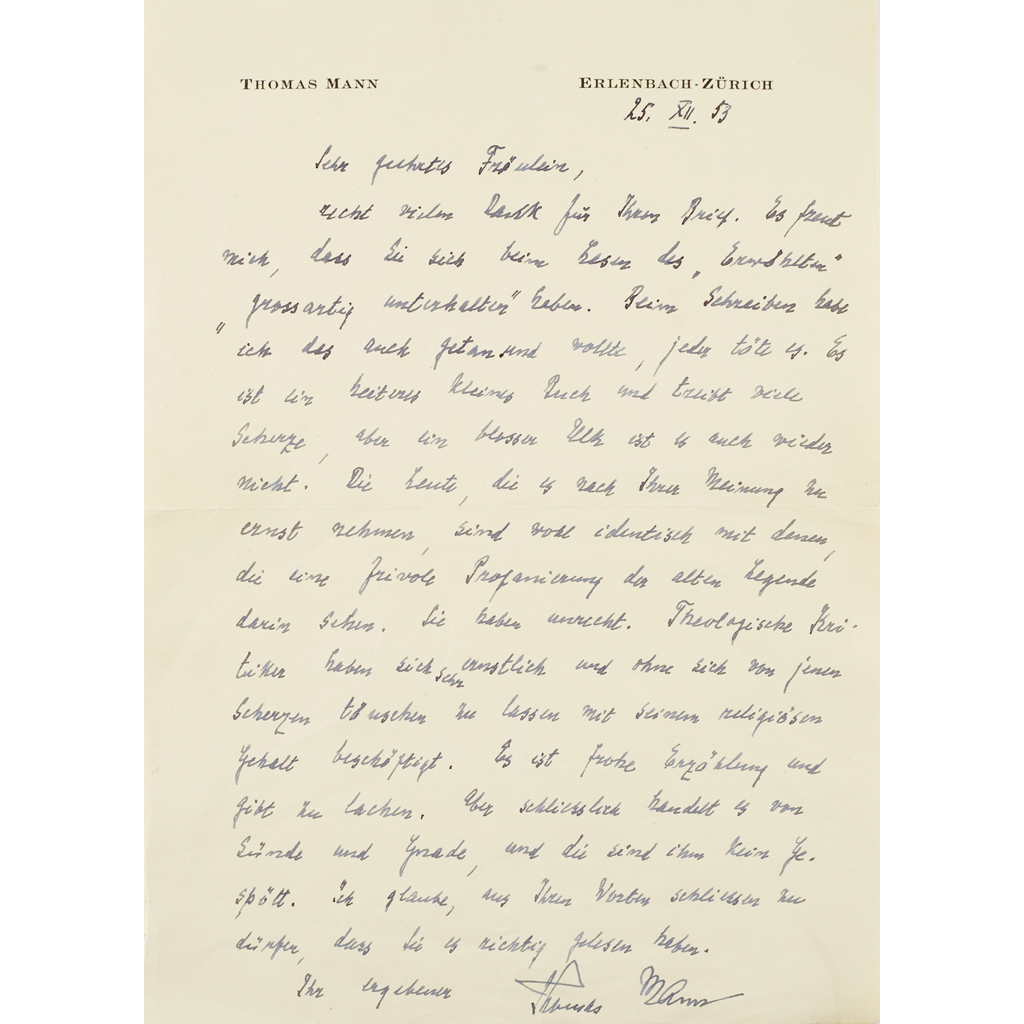 THOMAS MANN
ERLENBACH-ZÜRICH
25. XII. 53
Sehr geehrtes Fräulein,
recht vielen Dank für Ihren Brief. Es freut
mich, dass Sie sich beim Lesen des „Erwählten"
„grossartig unterhalten" haben. Beim Schreiben habe
ich das auch getan und wollte, jeder täte es. Es
ist ein heiteres kleines Buch und treibt viele
Scherze, aber ein blosser Ulk ist es auch wieder
nicht. Die Leute, die es nach Ihrer Meinung zu
ernst nehmen, sind wohl identisch mit denen,
die eine frivole Profanierung der alten Legende
darin sehen. Sie haben unrecht. Theologische Kri-
tiker haben sich sehr ernstlich und ohne sich von jenen
Scherzen täuschen zu lassen mit seinem religiösen
Gehalt beschäftigt. Es ist frohe Erzählung und
gibt zu lachen. Aber schliesslich handelt es von
Sünde und Gnade, und die sind ihm kein Ge-
spött. Ich glaube, aus Ihren Worten schliessen zu
dürfen, dass Sie es richtig gelesen haben.
Ihr ergebener
Thomas Mann